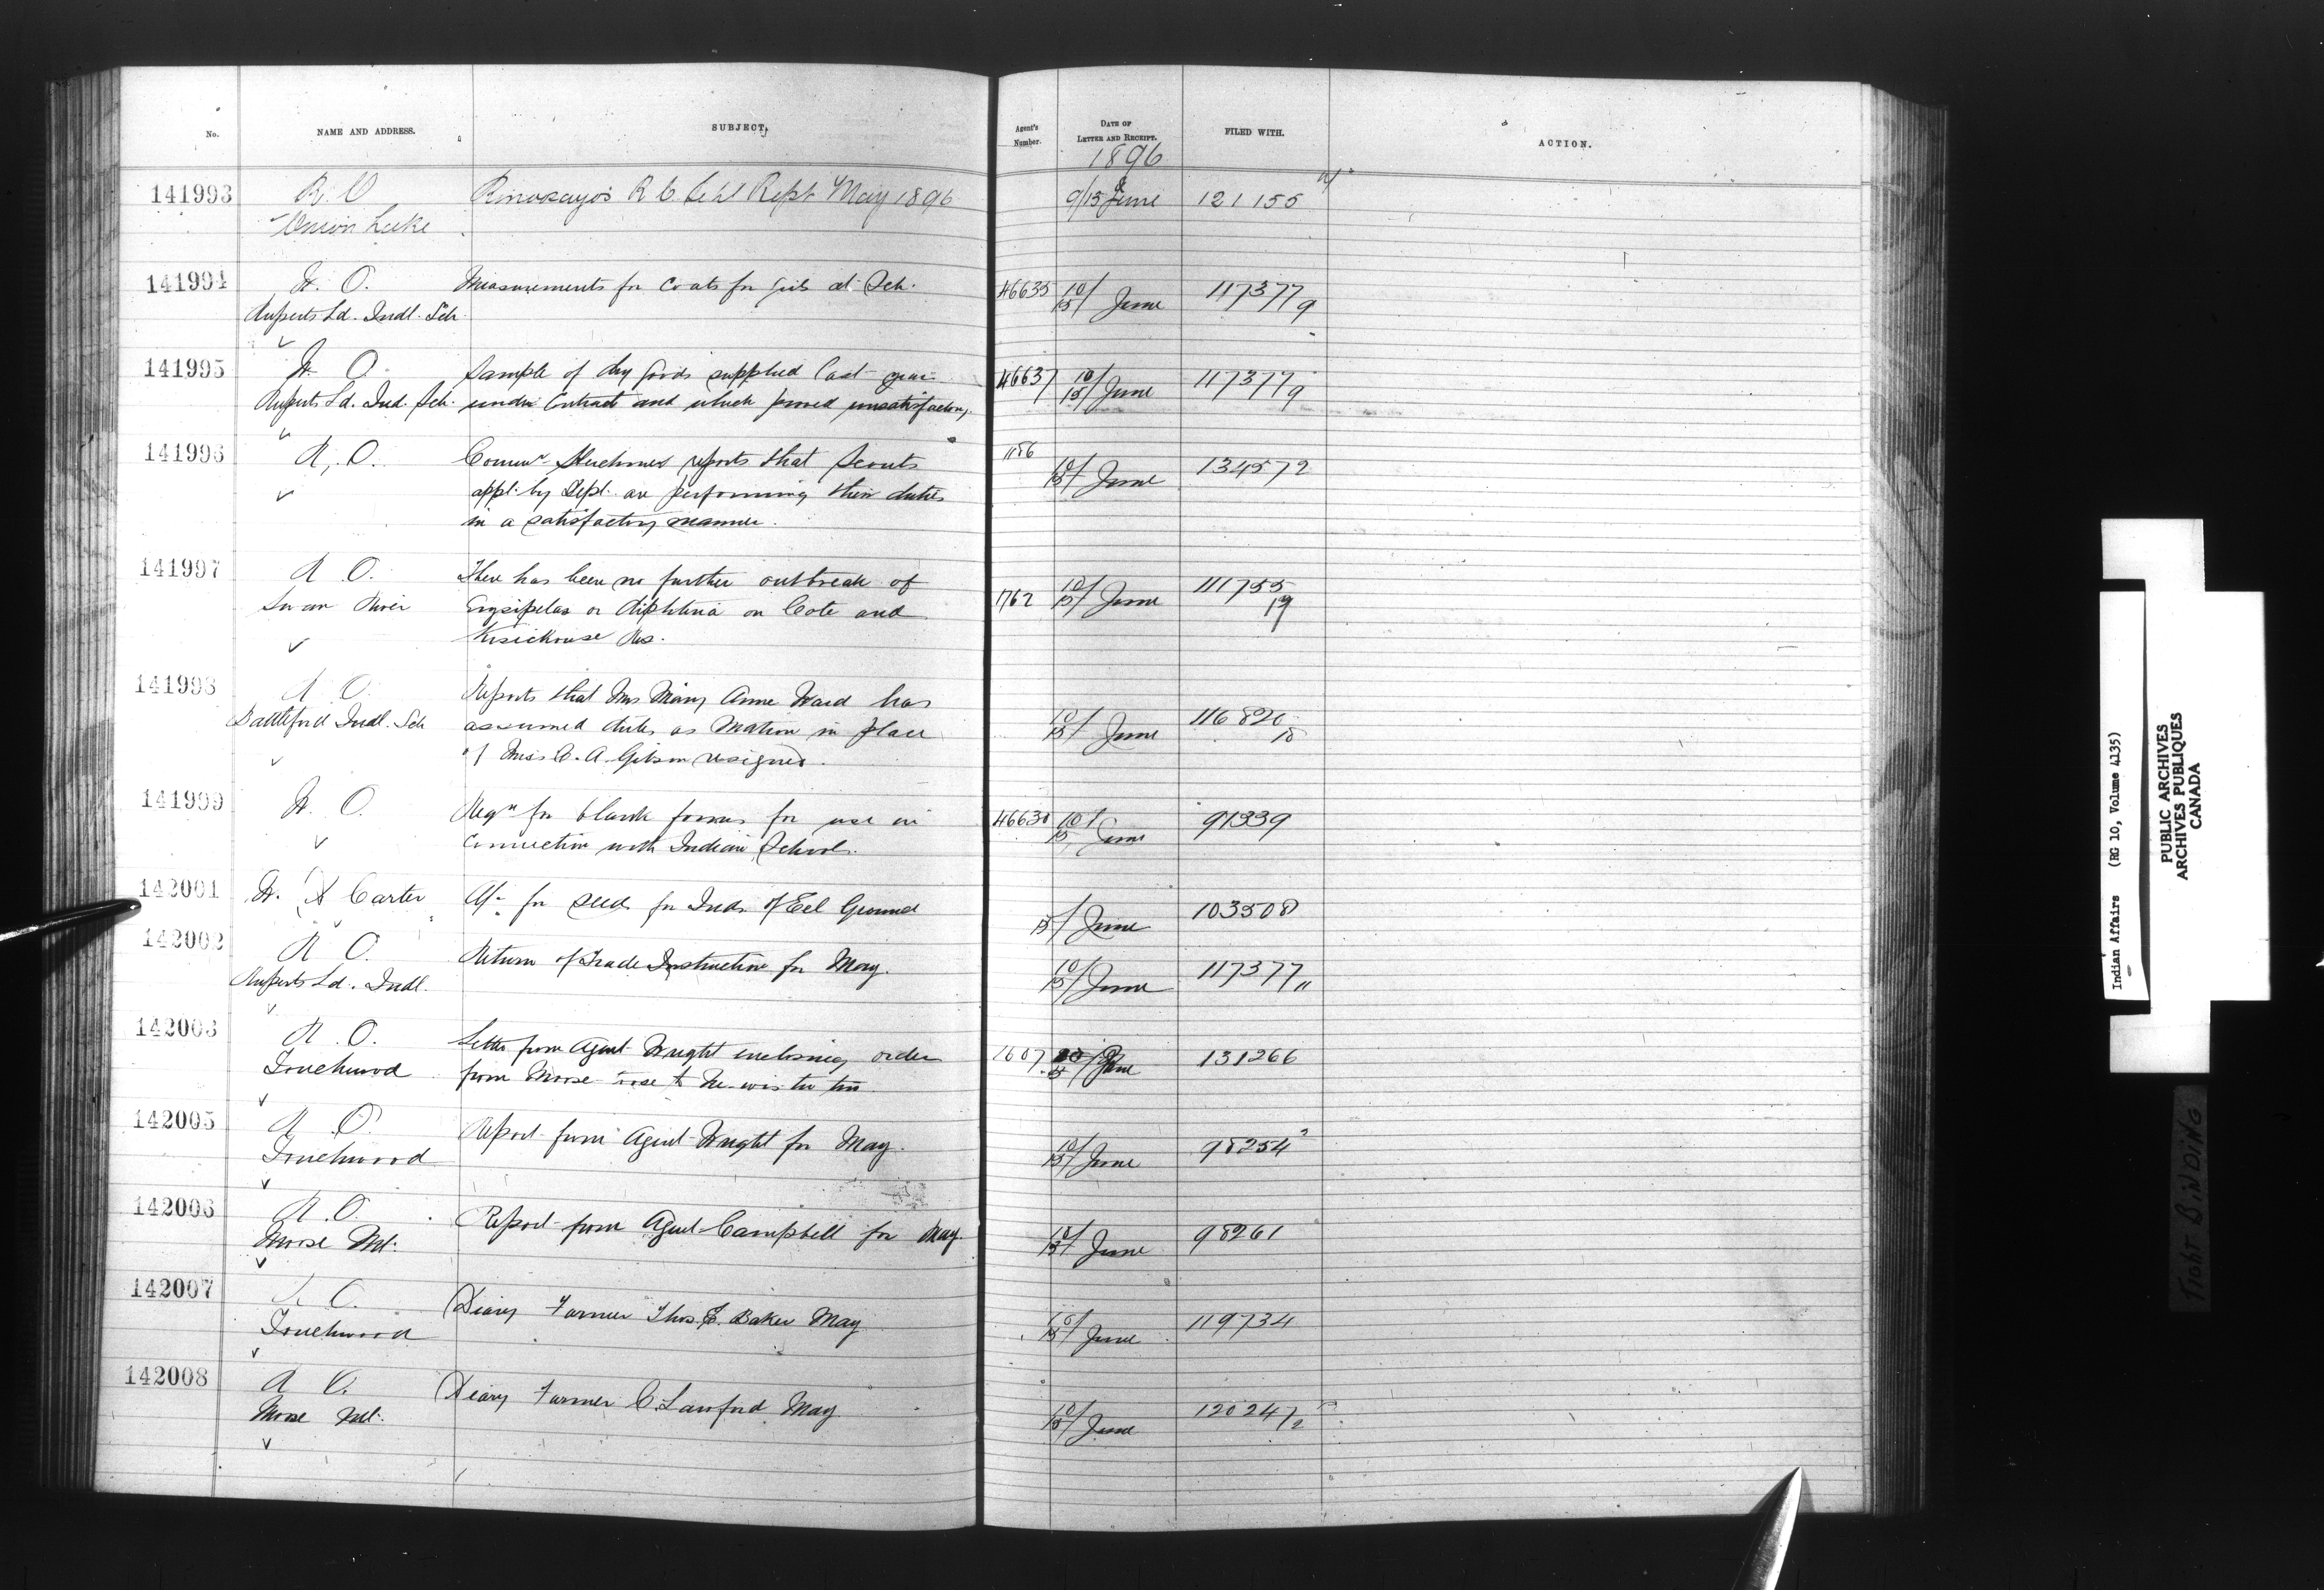 No. NAME AND ADDRESS. SUBJECT. Agent's Number. DATE OF LETTER AND RECEIPT. FILED WITH. ACTION.
1896
141993 R. O Schl Rept May 1896 9/15 June 121155
Onion Lake
141994 W. O. Measurements for Coats for girls at Sch. 46635 10/15 June 117377/9
Ruperts Ld. Indl. Sch.
141995 W. O. Sample of dry goods supplied last year 46637 10/15 June 117377/9
Ruperts Ld. Ind. Sch. under Contract and which proved unsatisfactory.
141996 R. O. reports that Scouts 1186 10/15 June 134572
appt. by Dept. are performing their duties
in a satisfactory manner.
141997 R O. There has been no further outbreak of 1762 10/15 June 111755/19
Swan River Erysipelas or diphtheria on Cote and
Res.
141998 R O. Reports that Mrs Mary Anne Ward has 10/15 June 116820/18
Battleford Indl. Sch assumed duties as Matron in place
of Miss C. A. Gibson resigned.
141999 W. O. Reqn for blank forms for use in 46630 10/15 June 91339
Connection with Indian Schools.
142001 W. A Carter for seeds for Inds. of Eel Ground 15/ June 103508
142002 R O. Return of Trade Instruction for May. 10/15 June 117377/11
Ruperts Ld. Indl.
142003 R. O. Letter from Agent Wright enclosing order 1607 June 131266
Touchwood from
142005 R O. Report from Agent Wright for May. 10/15 June 98254 2
Touchwood
142006 R. O. Report from Agent Campbell for May. 10/15 June 98261
Moose Mt.
142007 R O. Diary Farmer Thos. E. Baker May 10/15 June 119734
Touchwood
142008 R O. Diary Farmer C. Lawford May 10/15 June 120247/2
Moose Mt.
Indian Affairs (RG 10, Volume 4135)
PUBLIC ARCHIVES
ARCHIVES PUBLIQUES
CANADA
TIGHT BINDING